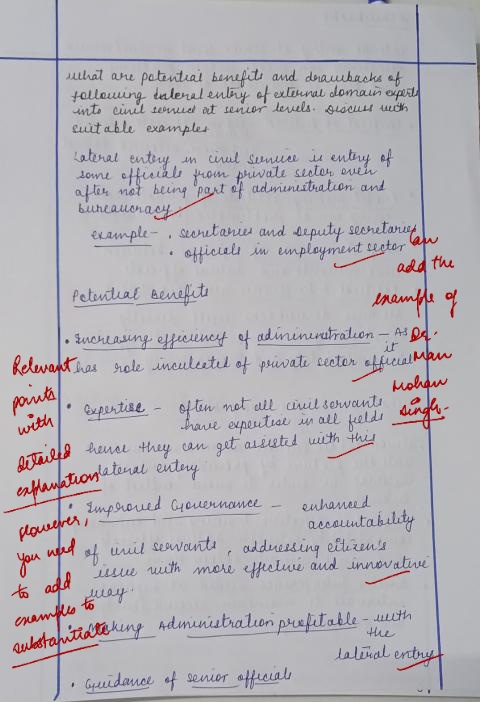 what are potential benefits and drawbacks of
following lateral entry of external domain experts
into civil services at senior levels. Discuss with
suitable examples
Lateral entry in civil service is entry of
some officials from private sector even
after not being part of administration and
bureaucracy.
example - • secretaries and deputy secretaries
• officials in employment sector
Can
add the
example of
Dr.
Man
Mohan
Singh.
Potential Benefits
• Increasing efficiency of administration - As
it
has role inculcated of private sector official
Relevant
points
with
detailed
explanation
• Expertise - often not all civil servants
have expertise in all fields
hence they can get assisted with this
lateral entry
However,
you need
to add
examples to
substantiate
• Improved Governance - enhanced
accountability
of civil servants, addressing citizen's
issue with more effective and innovative
way.
• Making Administration profitable - with
the
lateral entry
• Guidance of senior officials